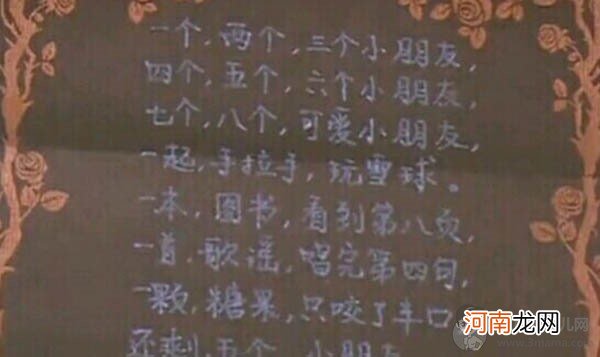 一个,两个,三个小朋友,
四个,五个,六个小朋友,
七个,八个,可爱小朋友,
一起,手拉手,玩雪球。
一本,图书,看到第八页,
一首,歌谣,唱完第四句,
一颗,糖果,只咬了半口
还剩,五个,小朋友
河南龙网
www.3mama.com